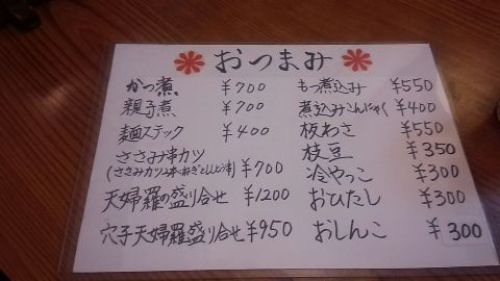 おつまみ
かつ煮 ¥700
親子煮 ¥700
麺スティック ¥400
ささみ串カツ
(ささみカツ2本・ねぎとししとう1本) ¥700
天婦羅の盛り合せ ¥1200
穴子天婦羅盛り合せ ¥950
もつ煮込み ¥550
煮込みこんにゃく ¥400
板わさ ¥550
枝豆 ¥350
冷やっこ ¥300
おひたし ¥300
おしんこ ¥300